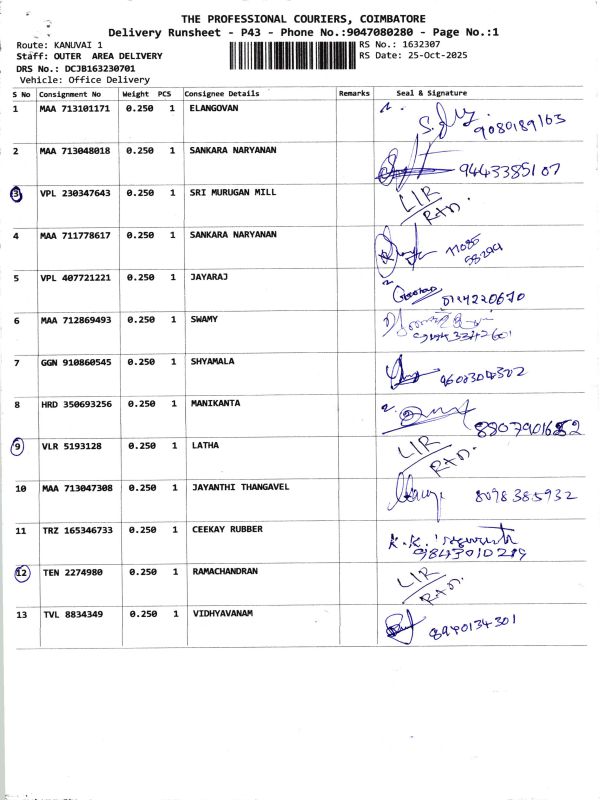 THE PROFESSIONAL COURIERS, COIMBATORE
Delivery Runsheet - P43 - Phone No.:9047080280 - Page No.:1
Route: KANUVAI 1 RS No.: 1632307
Staff: OUTER AREA DELIVERY RS Date: 25-Oct-2025
DRS No.: DCJB163230701
Vehicle: Office Delivery
S No Consignment No Weight PCS Consignee Details Remarks Seal & Signature
1 MAA 713101171 0.250 1 ELANGOVAN 9080189163
2 MAA 713048018 0.250 1 SANKARA NARYANAN 9443385107
3 VPL 230347643 0.250 1 SRI MURUGAN MILL LIR
4 MAA 711778617 0.250 1 SANKARA NARYANAN
5 VPL 407721221 0.250 1 JAYARAJ
6 MAA 712869493 0.250 1 SWAMY
7 GGN 910860545 0.250 1 SHYAMALA 9600304302
8 HRD 350693256 0.250 1 MANIKANTA
9 VLR 5193128 0.250 1 LATHA LIR
10 MAA 713047308 0.250 1 JAYANTHI THANGAVEL 8098385932
11 TRZ 165346733 0.250 1 CEEKAY RUBBER K.K.
9843010219
12 TEN 2274980 0.250 1 RAMACHANDRAN LIR
13 TVL 8834349 0.250 1 VIDHYAVANAM 8940134301